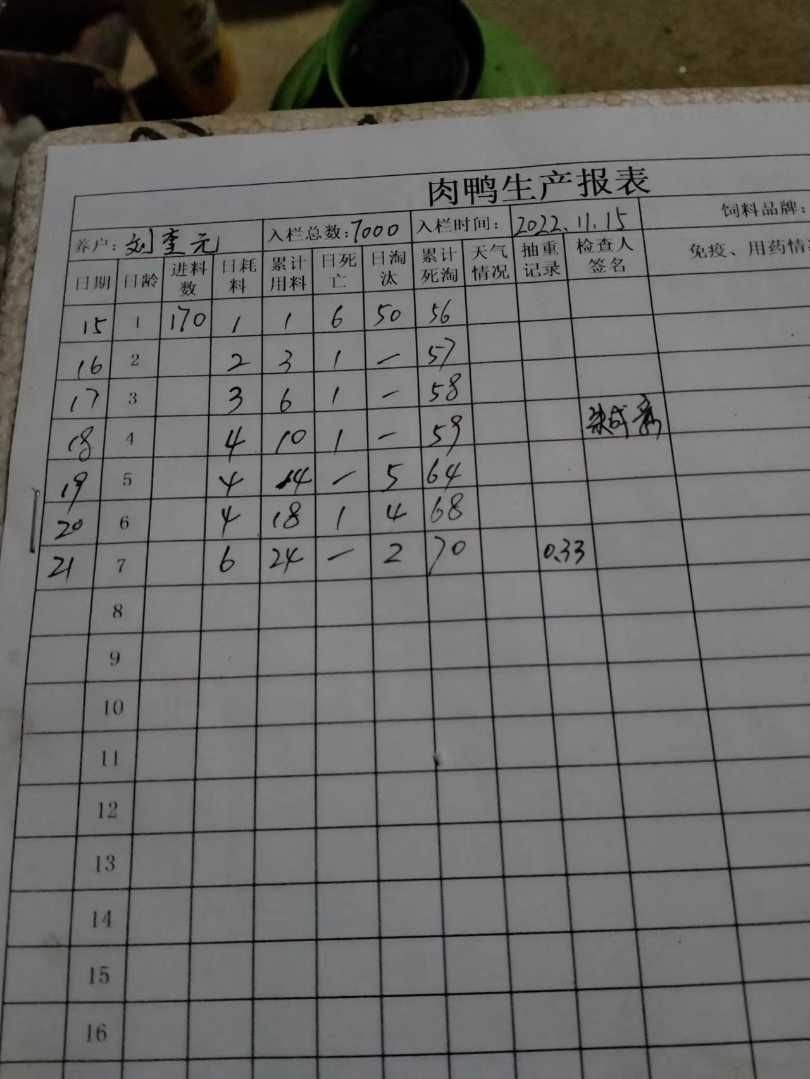 肉鸭生产报表
养户：刘奎元 入栏总数：7000 入栏时间：2022.11.15 饲料品牌：
日期 日龄 进料数 日耗料 累计用料 日死亡 日淘汰 累计死淘 天气情况 抽重记录 检查人签名 免疫、用药情
15 1 170 1 1 6 50 56
16 2 2 3 1 - 57
17 3 3 6 1 - 58
18 4 4 10 1 - 59
19 5 4 14 - 5 64
20 6 4 18 1 4 68
21 7 6 24 - 2 70 0.33
8
9
10
11
12
13
14
15
16